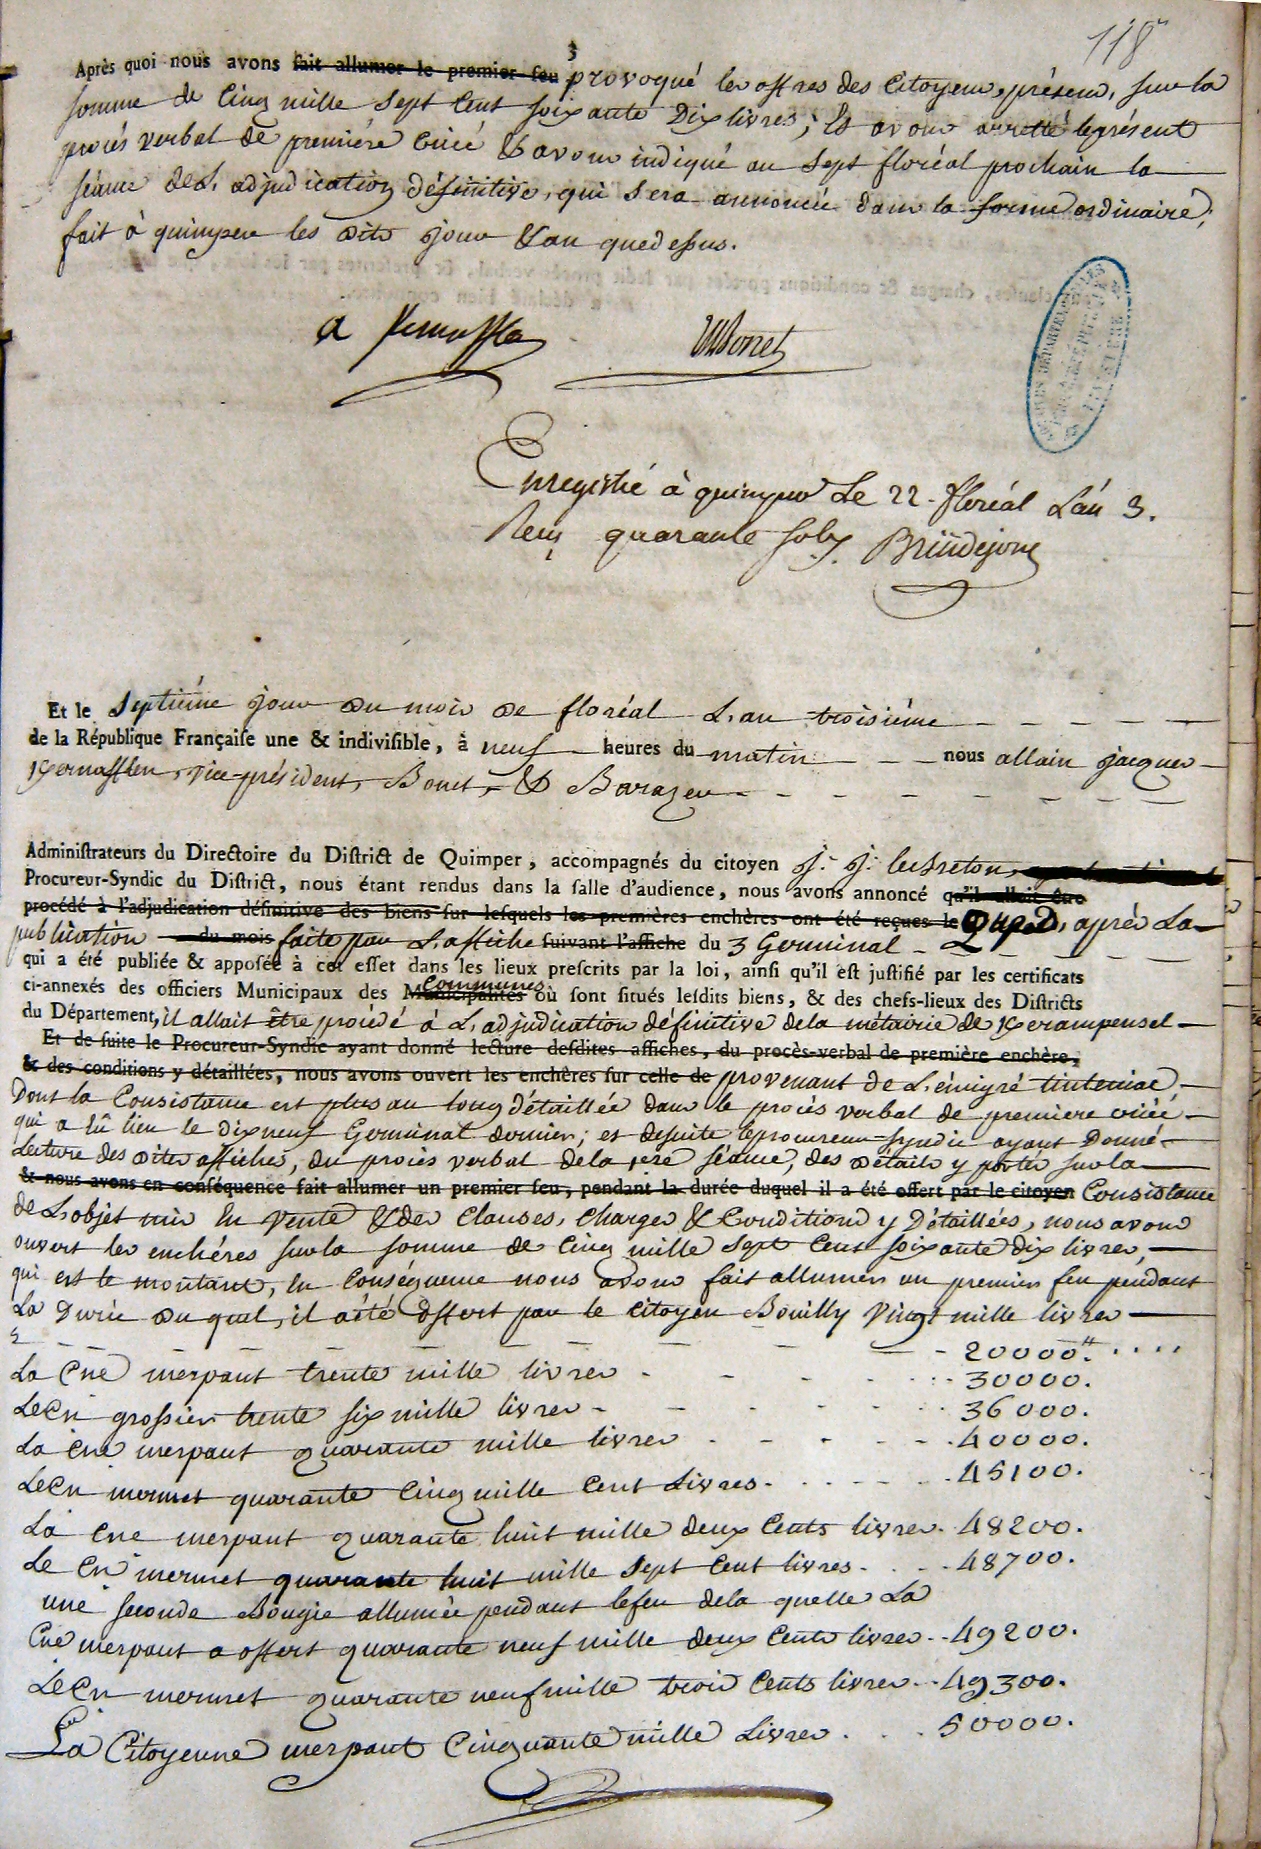 118
Après quoi nous avons fait allumer le premier feu provoqué les offres des Citoyens présens, sur la
somme de Cinq mille Sept Cent soixante Dix livres; Et avons arretté le présent
procés verbal de premiére Criée & avons indiqué au Sept floréal prochain la
séance de L'adjudication définitive, qui sera annoncée dans la forme ordinaire;
fait à quimper les dits jour & an que dessus.
Enregistré à quimper Le 22 floréal L'an 3.
Reçu quarante sols Brindejonc
Et le Septiéme jour du mois de floréal L'an troisiéme
de la République Françaiſe une & indiviſible, à neuf heures du matin nous allain jacques
Kernafflen, vice-président, Bonet, & Barazer
Adminiſtrateurs du Directoire du Diſtrict de Quimper, accompagnés du citoyen J. J. le Breton,
Procureur-Syndic du Diſtrict, nous étant rendus dans la ſalle d'audience, nous avons annoncé qu'il alloit être
procédé à l'adjudication définitive des biens ſur leſquels les premières enchères ont été reçues le que d'après La
publication du mois faite par L'affiche ſuivant l'affiche du 3 Germinal
qui a été publiée & appoſée à cet effet dans les lieux preſcrits par la loi, ainſi qu'il eſt juſtifié par les certificats
Communes
ci-annexés des officiers Municipaux des Municipalités où ſont ſitués leſdits biens, & des chefs-lieux des Diſtricts
du Département, il allait être procédé à L'adjudication définitive de la métairie de Kerampensel
Et de ſuite le Procureur-Syndic ayant donné lecture deſdites affiches, du procès-verbal de première enchère,
& des conditions y détaillées, nous avons ouvert les enchères ſur celle de provenant de L'émigré tinteniac
Dont la Consistance est plus au long détaillée dans le procés verbal de premiere criée
qui a eû lieu le dix neuf Germinal dernier; et desuite le procureur-syndic ayant Donné
Lecture des dites affiches, du procès verbal de la 1ere séance, des détails y portés sur la
& nous avons en conſéquence fait allumer un premier feu, pendant la durée duquel il a été offert par le citoyen Consistance
de L'objet mis En Vente & des Clauses, Charges & Conditions y Détaillées, nous avons
ouvert les enchéres sur la somme de Cinq mille Sept Cent soixante dix livres,
qui est le montant, En Conséquence nous avons fait allumer un premier feu pendant
La Durée du quel, il a été offert par le Citoyen Bouilly Vingt mille livres
20000.
La Cne merpaut trente mille livres 30000.
Le Cn grossier trente six mille livres 36000.
La Cne merpaut quarante mille livres 40000.
Le Cn mermet quarante Cinq mille Cent Livres 45100.
La Cne merpaut quarante huit mille deux Cents livres 48200.
Le Cn mermet quarante huit mille Sept Cent livres 48700.
une seconde Bougie allumée pendant le feu de la quelle La
Cne merpaut a offert quarante neuf mille deux Cents livres 49200.
Le Cn mermet quarante neuf mille trois Cents livres 49300.
La Citoyenne merpaut Cinquante mille Livres 50000.